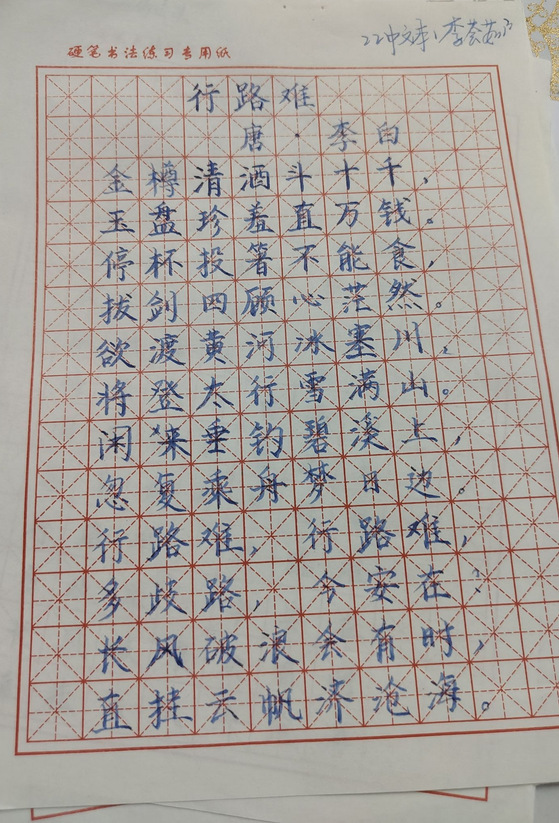 硬笔书法练习专用纸
22中文本1李荟茹
行路难
唐·李白
金樽清酒斗十千，
玉盘珍羞直万钱。
停杯投箸不能食，
拔剑四顾心茫然。
欲渡黄河冰塞川，
将登太行雪满山。
闲来垂钓碧溪上，
忽复乘舟梦日边。
行路难，行路难，
多歧路，今安在？
长风破浪会有时，
直挂云帆济沧海。